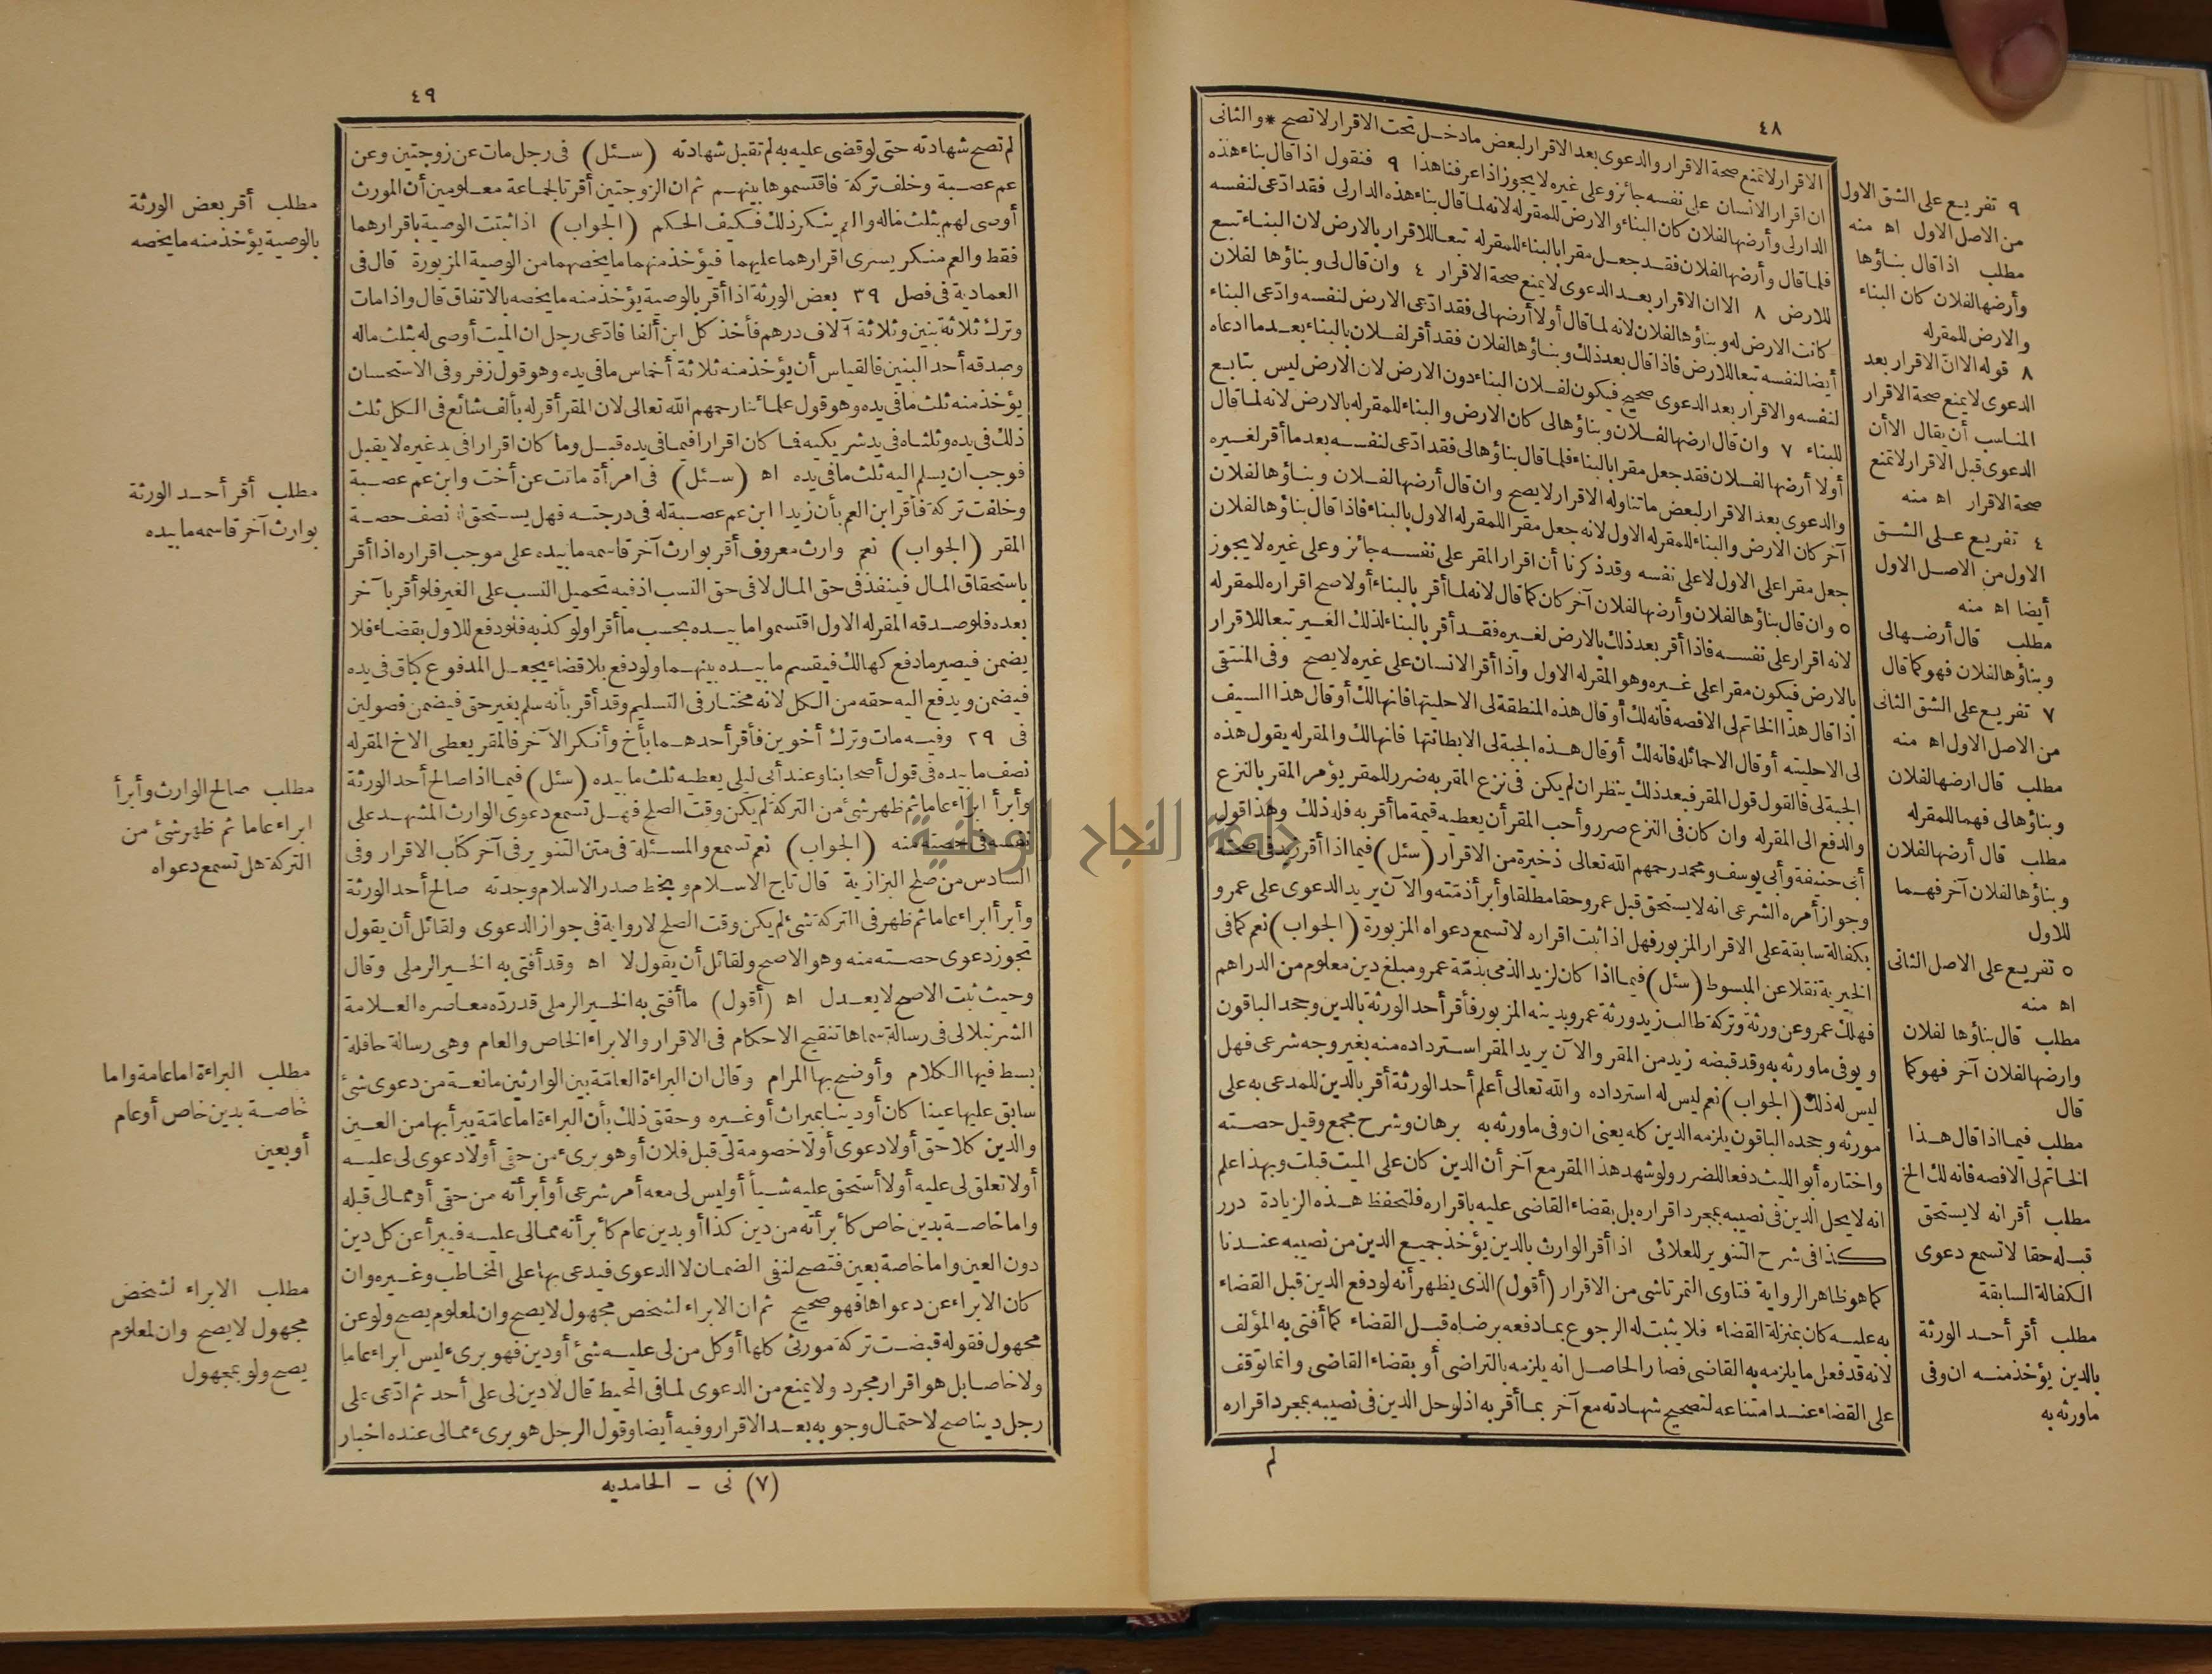 ٤٨
الاقرار لا تمنع صحة الاقرار والدعوى بعد الاقرار لبعض ما دخل تحت الاقرار لا تصح * والثانى
ان اقرار الانسان على نفسه جائز وعلى غيره لا يجوز اذا عرفنا هذا ٩ فنقول اذا قال بناء هذه
الدار لى وأرضها لفلان كان البناء والارض للمقر له لانه لما قال بناء هذه الدار لى فقد ادّعى لنفسه
فلما قال وأرضها لفلان فقد جعل مقرا بالبناء للمقر له تبعا للاقرار بالارض لان البناء تبع
للارض ٨ الا ان الاقرار بعد الدعوى لا يمنع صحة الاقرار ٤ وان قال لى وبناؤها لفلان
كانت الارض له وبناؤها لفلان لانه لما قال أولا أرضها لى فقد ادّعى الارض لنفسه وادّعى البناء
أيضا لنفسه تبعا للارض فاذا قال بعد ذلك وبناؤها لفلان فقد أقر لفلان بالبناء بعد ما ادعاه
لنفسه والاقرار بعد الدعوى صحيح فيكون لفلان البناء دون الارض لان الارض ليس بتابع
للبناء ٧ وان قال ارضها لفلان وبناؤها لى كان الارض والبناء للمقر له بالارض لانه لما قال
أولا أرضها لفلان فقد جعل مقرا بالبناء فلما قال بناؤها لى فقد ادّعى لنفسه بعد ما أقر لغيره
والدعوى بعد الاقرار لبعض ما تناوله الاقرار لا يصح وان قال أرضها لفلان وبناؤها لفلان
آخر كان الارض والبناء للمقر له الاول لانه جعل مقرا للمقر له الاول بالبناء فاذا قال بناؤها لفلان
جعل مقرا على الاول لا على نفسه وقد ذكرنا أن اقرار المقر على نفسه جائز وعلى غيره لا يجوز
٥ وان قال بناؤها لفلان وأرضها لفلان آخر كان كما قال لانه لما أقر بالبناء أولا صح اقراره للمقر له
لانه اقرار على نفسه فاذا أقر بعد ذلك بالارض لغيره فقد أقر بالبناء لذلك الغير تبعا للاقرار
بالارض فيكون مقرا على غيره وهو المقر له الاول واذا أقر الانسان على غيره لا يصح وفى المنتقى
اذا قال هذا الخاتم لى الا فصه فانه لك أو قال هذه المنطقة لى الا حليتها فانها لك أو قال هذا السيف
لى الا حليته أو قال الا حمائله فانه لك أو قال هذه الجبة لى الا بطانتها فانها لك والمقر له يقول هذه
الجبة لى فالقول قول المقر فبعد ذلك ينظر ان لم يكن فى نزع المقر به ضرر للمقر يؤمر المقر بالنزع
والدفع الى المقر له وان كان فى النزع ضرر وأحب المقر أن يعطيه قيمة ما أقر به فله ذلك وهذا قول
أبى حنيفة وأبى يوسف ومحمد رحمهم الله تعالى ذخيرة من الاقرار (سئل) فيما اذا أقر زيد فى صحته
وجواز أمره الشرعى انه لا يستحق قبل عمرو حقا مطلقا وأبرأ ذمّته والآن يريد الدعوى على عمرو
بكفالة سابقة على الاقرار المزبور فهل اذا ثبت اقراره لا تسمع دعواه المزبورة (الجواب) نعم كما فى
الخيرية نقلا عن المبسوط (سئل) فيما اذا كان لزيد الذمى بذمّة عمرو مبلغ دين معلوم من الدراهم
فهلك عمرو عن ورثة وتركة طالب زيد ورثة عمرو بدينه المزبور فأقر أحد الورثة بالدين وجحد الباقون
ويوفى ما ورثه به وقد قبضه زيد من المقر والآن يريد المقر استرداده منه بغير وجه شرعى فهل
ليس له ذلك (الجواب) نعم ليس له استرداده والله تعالى أعلم أحد الورثة أقر بالدين للمدعى به على
مورثه وجحده الباقون يلزمه الدين كله يعنى ان وفى ما ورثه به برهان وشرح مجمع وقيل حصته
واختاره أبو الليث دفعا للضرر ولو شهد هذا المقر مع آخر أن الدين كان على الميت قبلت وبهذا علم
انه لا يحل الدين فى نصيبه بمجرد اقراره بل بقضاء القاضى عليه باقراره فلتحفظ هذه الزيادة درر
كذا فى شرح التنوير للعلائى اذا أقر الوارث بالدين يؤخذ جميع الدين من نصيبه عندنا
كما هو ظاهر الرواية فتاوى التمرتاشى من الاقرار (أقول) الذى يظهر أنه لو دفع الدين قبل القضاء
به عليه كان بمنزلة القضاء فلا يثبت له الرجوع بما دفعه برضاه قبل القضاء كما أفتى به المؤلف
لانه قد فعل ما يلزمه به القاضى فصار الحاصل انه يلزمه بالتراضى أو بقضاء القاضى وانما توقف
على القضاء عند امتناعه لتصحيح شهادته مع آخر بما أقر به اذ لو حل الدين فى نصيبه بمجرد اقراره
لم
٩ تفريع على الشق الاول
من الاصل الاول اه منه
مطلب اذا قال بناؤها
وأرضها لفلان كان البناء
والارض للمقر له
٨ قوله الا انّ الاقرار بعد
الدعوى لا يمنع صحة الاقرار
المناسب أن يقال الا أن
الدعوى قبل الاقرار لا تمنع
صحة الاقرار اه منه
٤ تفريع على الشق
الاول من الاصل الاول
أيضا اه منه
مطلب قال أرضها لى
وبناؤها لفلان فهو كما قال
٧ تفريع على الشق الثانى
من الاصل الاول اه منه
مطلب قال ارضها لفلان
وبناؤها لى فهما للمقر له
مطلب قال أرضها لفلان
وبناؤها لفلان آخر فهما
للاول
٥ تفريع على الاصل الثانى
اه منه
مطلب قال بناؤها لفلان
وارضها لفلان آخر فهو كما
قال
مطلب فيما اذا قال هذا
الخاتم لى الا فصه فانه لك الخ
مطلب أقر انه لا يستحق
قبله حقا لا تسمع دعوى
الكفالة السابقة
مطلب أقر أحد الورثة
بالدين يؤخذ منه ان وفى
ما ورثه به
٤٩
لم تصح شهادته حتى لو قضى عليه به لم تقبل شهادته (سئل) فى رجل مات عن زوجتين وعن
عم عصبة وخلف تركة فاقتسموها بينهم ثم ان الزوجتين أقرتا لجماعة معلومين أن المورث
أوصى لهم بثلث ماله والعم ينكر ذلك فكيف الحكم (الجواب) اذا ثبتت الوصية باقرارهما
فقط والعم منكر يسرى اقرارهما عليهما فيؤخذ منهما ما يخصهما من الوصية المزبورة قال فى
العمادية فى فصل ٣٩ بعض الورثة اذا أقر بالوصية يؤخذ منه ما يخصه بالاتفاق قال واذا مات
وترك ثلاثة بنين وثلاثة آلاف درهم فأخذ كل ابن ألفا فادّعى رجل ان الميت أوصى له بثلث ماله
وصدقه أحد البنين فالقياس أن يؤخذ منه ثلاثة أخماس ما فى يده وهو قول زفر وفى الاستحسان
يؤخذ منه ثلث ما فى يده وهو قول علمائنا رحمهم الله تعالى لان المقر أقر له بألف شائع فى الكل ثلث
ذلك فى يده وثلثاه فى يد شريكيه فما كان اقرارا فيما فى يده قبل وما كان اقرارا فى يد غيره لا يقبل
فوجب ان يسلم اليه ثلث ما فى يده اه (سئل) فى امرأة ماتت عن أخت وابن عم عصبة
وخلفت تركة فأقر ابن العم بأن زيدا ابن عم عصبة له فى درجته فهل يستحق زيد نصف حصة
المقر (الجواب) نعم وارث معروف أقر بوارث آخر قاسمه ما بيده على موجب اقراره اذا أقر
باستحقاق المال فينفذ فى حق المال لا فى حق النسب اذ فيه تحميل النسب على الغير فلو أقر بآخر
بعده فلو صدقه المقر له الاول اقتسموا ما بيده بحسب ما أقر ولو كذبه فلو دفع للاول بقضاء فلا
يضمن فيصير ما دفع كهالك فيقسم ما بيده بينهما ولو دفع بلا قضاء يجعل المدفوع كباق فى يده
فيضمن ويدفع اليه حقه من الكل لانه مختار فى التسليم وقد أقر بأنه سلم بغير حق فيضمن فصولين
فى ٢٩ وفيه مات وترك أخوين فأقر أحدهما بأخ وأنكر الآخر فالمقر يعطى الاخ المقر له
نصف ما بيده فى قول أصحابنا وعند أبى ليلى يعطيه ثلث ما بيده (سئل) فيما اذا صالح أحد الورثة
وأبرأ ابراء عاما ثم ظهر شئ من التركة لم يكن وقت الصلح فهل تسمع دعوى الوارث المشهد على
نفسه فى حصته منه (الجواب) نعم تسمع والمسئلة فى متن التنوير فى آخر كتاب الاقرار وفى
السادس من صلح البزازية قال تاج الاسلام وبخط صدر الاسلام وجدته صالح أحد الورثة
وأبرأ ابراء عاما ثم ظهر فى التركة شئ لم يكن وقت الصلح لا رواية فى جواز الدعوى ولقائل أن يقول
تجوز دعوى حصته منه وهو الاصح ولقائل أن يقول لا اه وقد أفتى به الخير الرملى وقال
وحيث ثبت الاصح لا يعدل اه (أقول) ما أفتى به الخير الرملى قد ردّه معاصره العلامة
الشرنبلالى فى رسالة سماها تنقيح الاحكام فى الاقرار والابراء الخاص والعام وهى رسالة حافلة
بسط فيها الكلام وأوضح بها المرام وقال ان البراءة العامّة بين الوارثين مانعة من دعوى شئ
سابق عليها عينا كان أو دينا بميراث أو غيره وحقق ذلك بأن البراءة اما عامّة يبرأ بها من العين
والدين كلا حق أو لا دعوى أو لا خصومة لى قبل فلان أو هو برىء من حقى أو لا دعوى لى عليه
أو لا تعلق لى عليه أو لا أستحق عليه شيأ أو ليس لى معه أمر شرعى أو أبرأته من حقى أو مما لى قبله
واما خاصة بدين خاص كأبرأته من دين كذا أو بدين عام كأبرأته مما لى عليه فيبرأ عن كل دين
دون العين واما خاصة بعين فتصح لنفى الضمان لا الدعوى فيدعى بها على المخاطب وغيره وان
كان الابراء عن دعواها فهو صحيح ثم ان الابراء لشخص مجهول لا يصح وان لمعلوم يصح ولو عن
مجهول فقوله قبضت تركة مورثى كلها أو كل من لى عليه شئ أو دين فهو برىء ليس ابراء عاما
ولا خاصا بل هو اقرار مجرد ولا يمنع من الدعوى لما فى المحيط قال لا دين لى على أحد ثم ادّعى على
رجل دينا صح لاحتمال وجوبه بعد الاقرار وفيه أيضا وقول الرجل هو برىء مما لى عنده اخبار
(٧) نى - الحامديه
مطلب أقر بعض الورثة
بالوصية يؤخذ منه ما يخصه
مطلب أقر أحد الورثة
بوارث آخر قاسمه ما بيده
مطلب صالح الوارث وأبرأ
ابراء عاما ثم ظهر شئ من
التركة هل تسمع دعواه
مطلب البراءة اما عامة واما
خاصة بدين خاص أو عام
أو بعين
مطلب الابراء لشخص
مجهول لا يصح وان لمعلوم
يصح ولو بمجهول
جامعة النجاح الوطنية